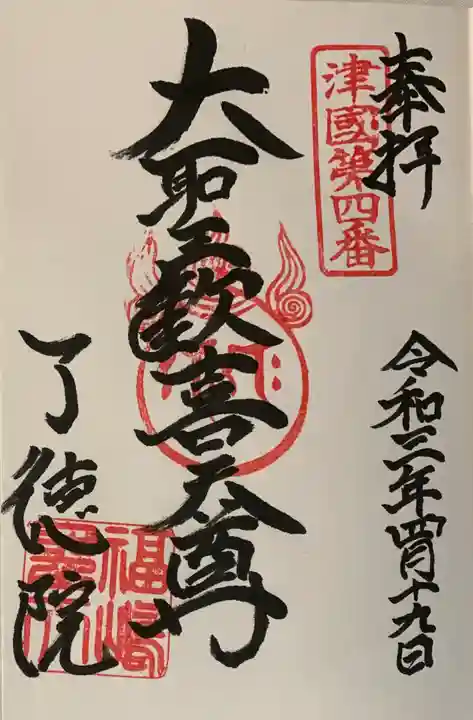 奉拝
津國第四番
令和三年四月十九日
大聖歓喜天尊
了徳院
福嶋